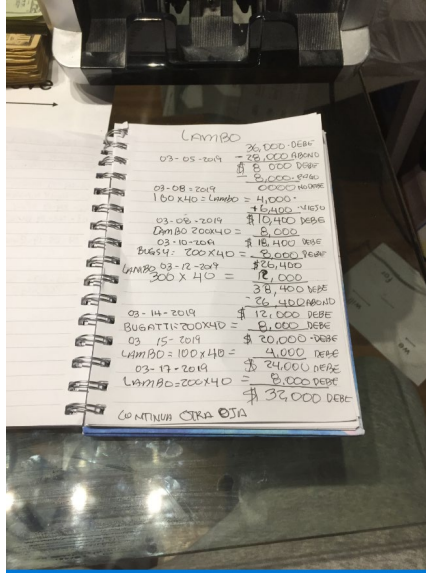 LAMBO
36,000 · DEBE
03-05-2019 - 28,000 ABONO
$ 8 000 DEBE
- 8,000 - PAGO
03-08=2019 00000 NO DEBE
100x40=Lambo = 4,000 ·
+6,400 - VIEJO
03-08-2019 $ 10,400 DEBE
LAMBO 200x40 = 8,000
03-10-2019 $ 18,400 DEBE
200x40 = 8,000 DEBE
LAMBO 03-12-2019 $26,400
300 x 40 = 12,000
38,400 DEBE
- 26,400 ABONO
03-14-2019 $ 12,000 DEBE
BUGATTI=200x40= 8,000 DEBE
03 15-2019 $ 20,000 - DEBE
LAMBO=100x40= 4,000 DEBE
03-17-2019 $ 24,000 DEBE
LAMBO=200x40= 8,000 DEBE
$ 32,000 DEBE
CONTINUA OTRA OJA